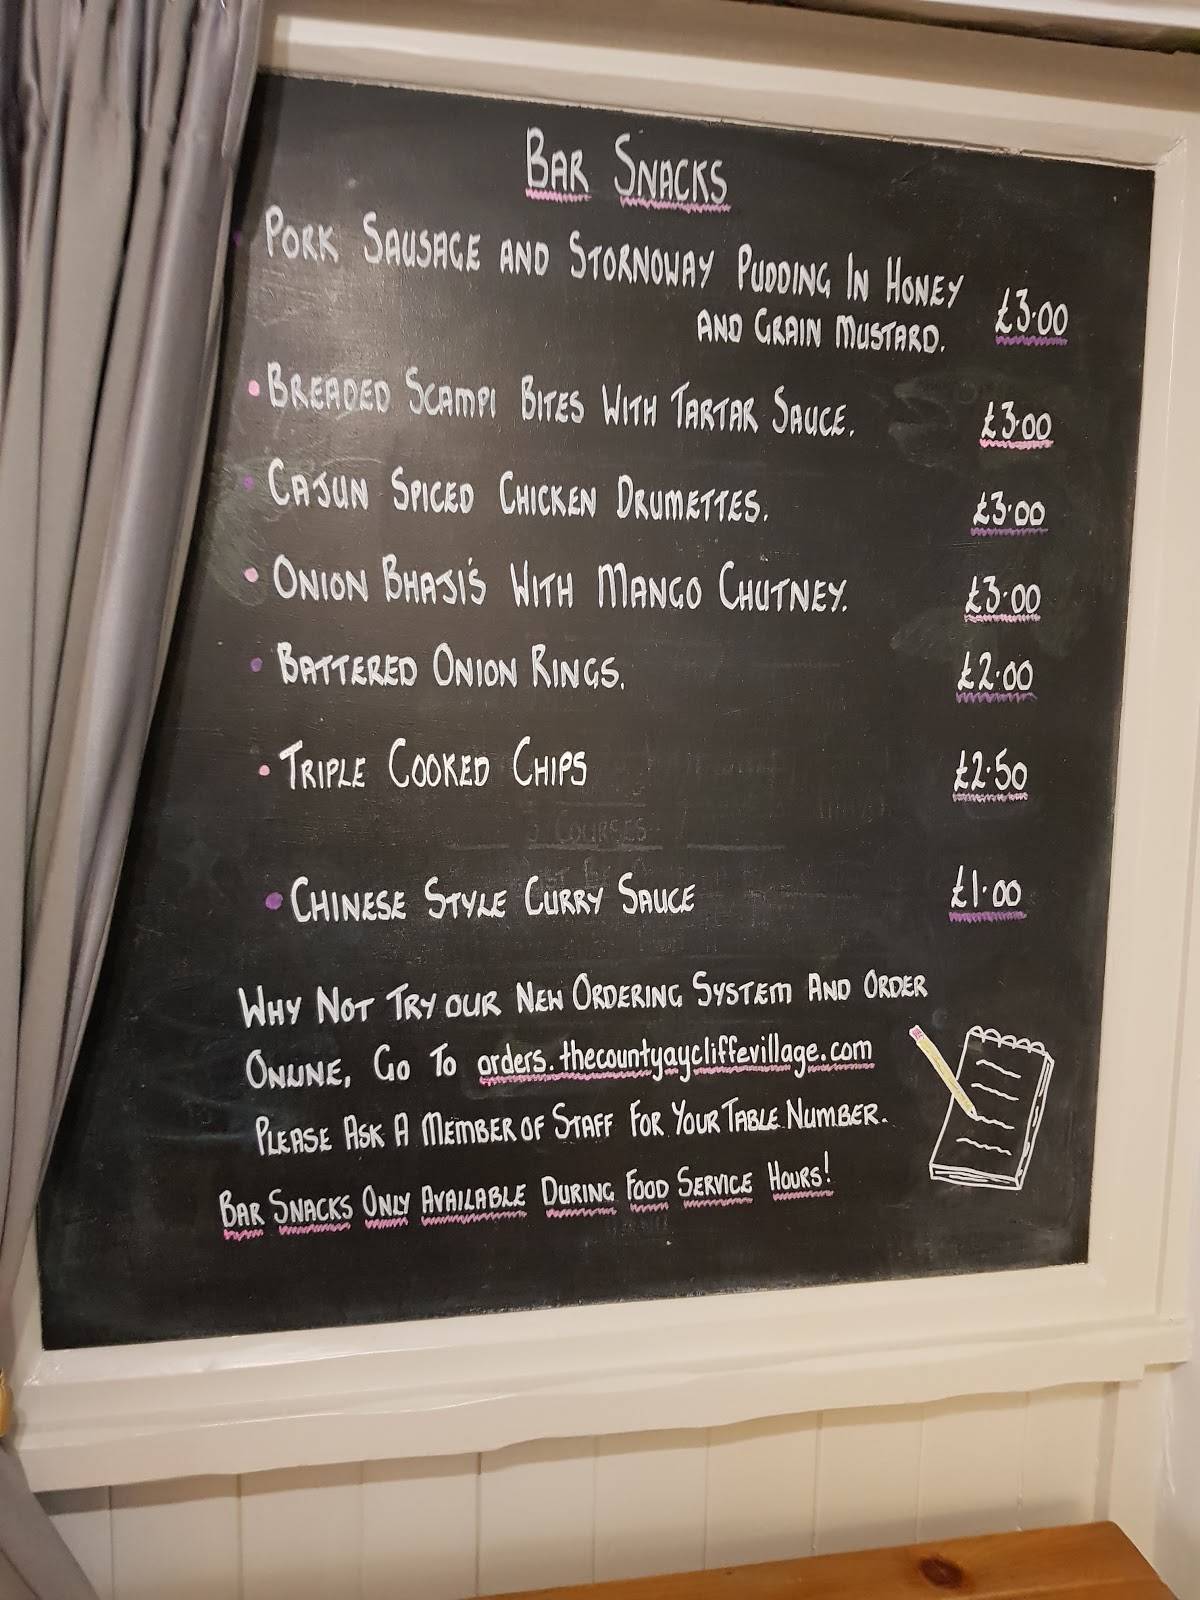 BAR SNACKS
PORK SAUSAGE AND STORNOWAY PUDDING IN HONEY
AND GRAIN MUSTARD. £3.00
• BREADED SCAMPI BITES WITH TARTAR SAUCE. £3.00
• CAJUN SPICED CHICKEN DRUMETTES. £3.00
• ONION BHAJI'S WITH MANGO CHUTNEY. £3.00
• BATTERED ONION RINGS. £2.00
• TRIPLE COOKED CHIPS £2.50
COURSES
• CHINESE STYLE CURRY SAUCE £1.00
WHY NOT TRY OUR NEW ORDERING SYSTEM AND ORDER
ONLINE, GO TO orders.thecountyaycliffevillage.com
PLEASE ASK A MEMBER OF STAFF FOR YOUR TABLE NUMBER.
BAR SNACKS ONLY AVAILABLE DURING FOOD SERVICE HOURS!